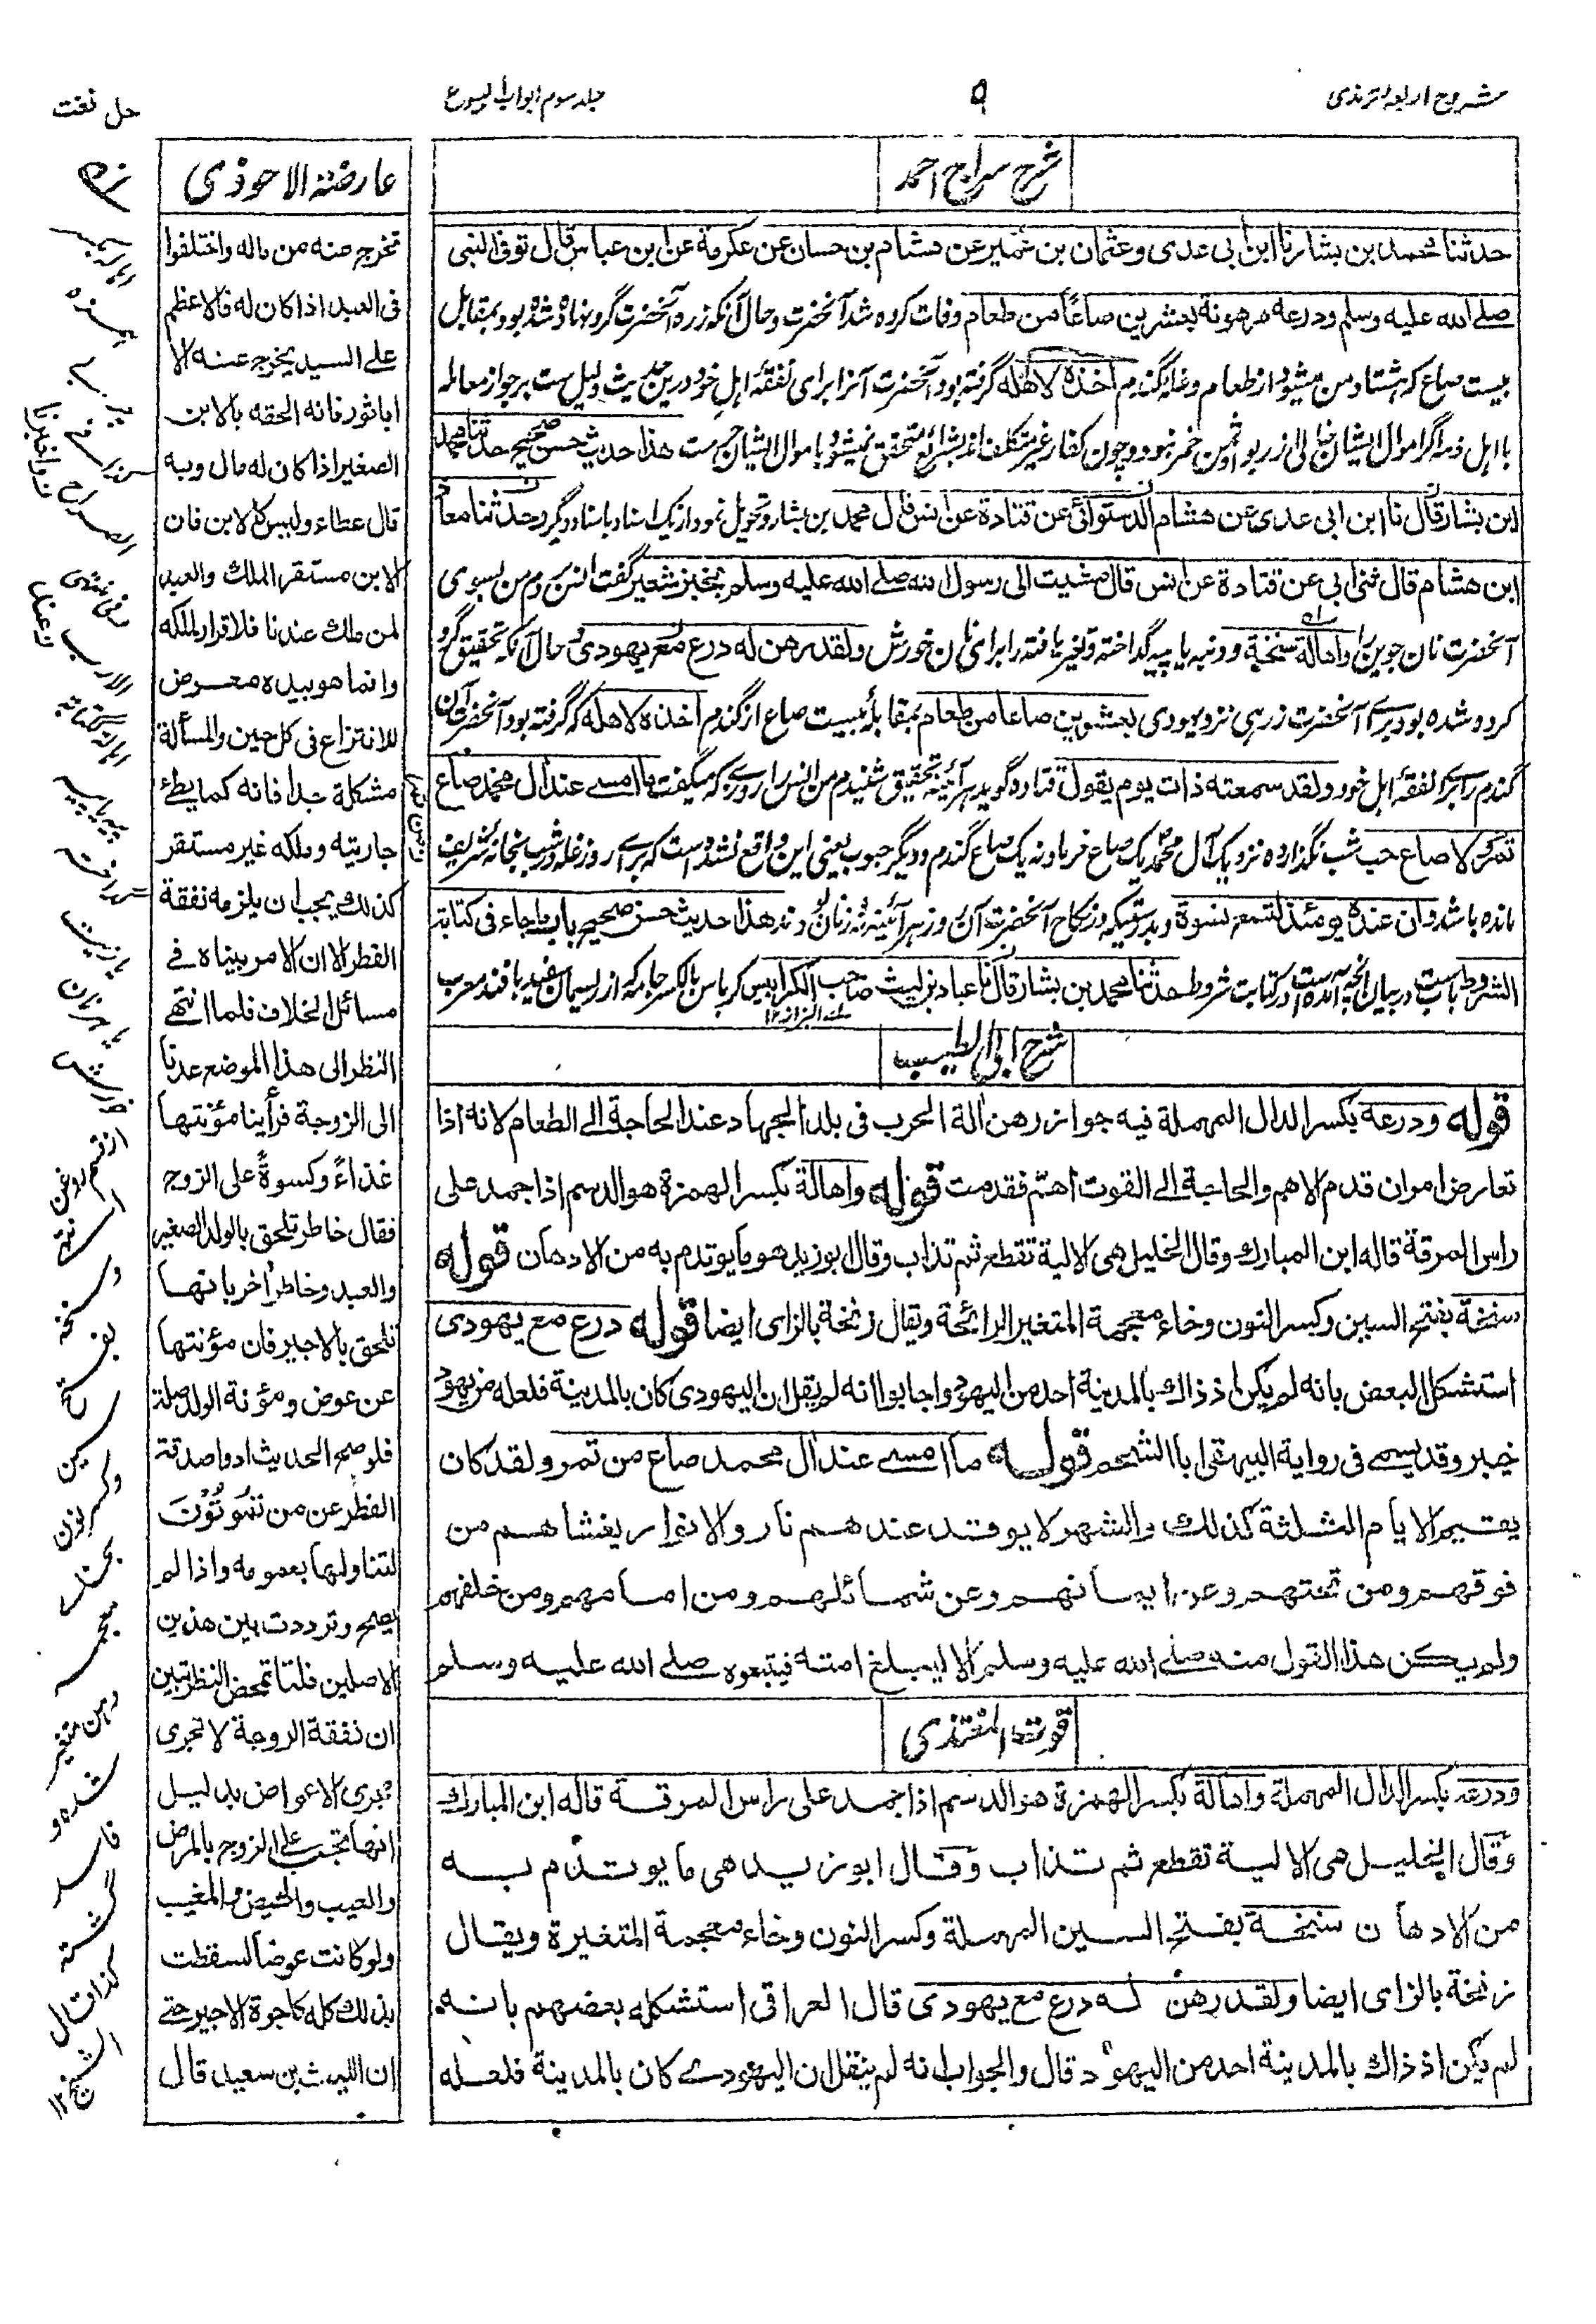 شروح اربعه ترمذی
۹
جلد سوم ابواب البیوع
حل لغت
شرح سراج احمد
حدثنا محمد بن بشار نا ابن ابی عدی وعثمان بن عمیر عن هشام بن حسان عن عکرمة عن ابن عباس قال توفی النبی
صلے الله علیه وسلم ودرعه مرهونة بعشرین صاعاً من طعام وفات کرده شد آنحضرت وحال آنکه زره آنحضرت گرو نهاده شده بود بمقابل
بیست صاع که هشتاد من میشود از طعام وغله گندم اخذه لاهله گرفته بود آنحضرت آنرا برای نفقه اهل خود درین حدیث دلیل ست بر جواز معامله
با اهل ذمه اگر اموال ایشان خالی از ربو او ثمن خمر نبود وچون کفار غیر متکلف اند بشرائع متحقق نمیشود باموال ایشان حرمت هذا حدیث حسن صحیح حدثنا محمد
ابن بشار قال نا ابن ابی عدی عن هشام الدستوائی عن قتادة عن انس قال محمد بن بشار وتحویل نمود از یک اسناد باسناد دیگر وحدثنا معاذ
ابن هشام قال ثنی ابی عن قتادة عن انس قال مشیت الی رسول الله صلے الله علیه وسلم بخبز شعیر گفت انس بردم من بسوی
آنحضرت نان جوین را واهالة سنخة و دنبه یا پیه گداخته وتغیر یافته را برای نان خورش ولقد رهن له درع مع یهودی وحال آنکه تحقیق گرو
کرده شده بود برای آنحضرت زرهی نزد یهودی بعشرین صاعا من طعام بمقابله بیست صاع از گندم اخذه لاهله که گرفته بود آنحضرت آن
گندم را برای نفقه اهل خود ولقد سمعته ذات یوم یقول قتاده گوید هر آئینه تحقیق شنیدم من انس را روزے که میگفت ما امسے عند ال محمد صاع
تمر ولا صاع حب شب نگذارده نزدیک آل محمد یک صاع خرما ونه یک صاع گندم ودیگر حبوب یعنی این واقع نشده است که برای روز غله در شب بخانه شریف
مانده باشد وان عنده یومئذ لتسع نسوة وبدرستیکه در نکاح آنحضرت آن روز هر آئینه نه زنان بودند هذا حدیث حسن صحیح باب ما جاء فی کتابة
الشروط باب ست در بیان انچه آمده است در کتابت شروط حدثنا محمد بن بشار قال نا عباد بن لیث صاحب الکرابیس کرباس بالکسر جامه که از ریسمان سفید بافند معرب
شرح ابی الطیب
قوله ودرعه بکسر الدال المهملة فیه جواز رهن الة الحرب فی بلد الجهاد عند الحاجة الے الطعام لانه اذا
تعارض امران قدم الاهم والحاجة الے القوت اهم فقدمت قوله واهالة بکسر الهمزة هو الدسم اذا جمد علی
راس المرقة قاله ابن المبارك وقال الخلیل هی الالیة تقطع ثم تذاب وقال ابوزید هو ما یوتدم به من الادهان قوله
سنخة بفتح السین وکسر النون وخاء معجمة المتغیر الرائحة ویقال زنخة بالزای ایضا قوله درع مع یهودی
استشکل البعض بانه لم یکن اذ ذاك بالمدینة احد من الیهود واجابوا انه لم یقل ان الیهودی کان بالمدینة فلعله من یهود
خیبر وقد یسمے فی روایة البیهقی ابا الشحم قوله ما امسے عند ال محمد صاع من تمر ولقد کان
یقیم الایام الثلثة کذلك والشهر لا یوقد عندهم نار والانوار یغشاهم من
فوقهم ومن تحتهم وعن ایمانهم وعن شمائلهم ومن امامهم ومن خلفهم
ولم یکن هذا القول منه صلے الله علیه وسلم الا لیبلغ امته فیتبعوه صلے الله علیه وسلم
قوت المغتذی
ودرعه بکسر الدال المهملة واهالة بکسر الهمزة هو الدسم اذا جمد علی راس المرقة قاله ابن المبارك
وقال الخلیل هی الالیة تقطع ثم تذاب وقال ابوزید هی ما یوتدم به
من الادهان سنخة بفتح السین المهملة وکسر النون وخاء معجمة المتغیرة ویقال
زنخة بالزای ایضا ولقد رهن له درع مع یهودی قال العراقی استشکله بعضهم بانه
لم یکن اذ ذاك بالمدینة احد من الیهود قال والجواب انه لم ینقل ان الیهودے کان بالمدینة فلعله
عارضة الاحوذی
تخرج عنه من ماله واختلفوا
فی العبد اذا کان له فالاعظم
علی السید یخرج عنه الا
اباثور فانه الحقه بالابن
الصغیر اذا کان له مال وبه
قال عطاء ولیس کالابن فان
الابن مستقر الملك والعبد
لمن ملك عندنا فلا قرار لملکه
وانما هو بیده معرض
للانتزاع فی کل حین والمسألة
مشکلة جدا فانه کما یطئ
جاریته وملکه غیر مستقر
کذلك یجب ان یلزمه نفقة
الفطر الا ان الامر بیناه فے
مسائل الخلاف فلما انتهے
النظر الی هذا الموضع عدنا
الی الزوجة فرأینا مؤنتها
غذاءً وکسوةً علی الزوج
فقال خاطر تلحق بالولد الصغیر
والعبد وخاطر أخر بانها
تلحق بالاجیر فان مؤنتها
عن عوض ومؤنة الولد صلة
فلو صح الحدیث ادوا صدقة
الفطر عن من تَمُوْنُوْنَ
لتناولها بعمومه واذا لم
یصح وترددت بین هذین
الاصلین فلتا تمحض النظر تبین
ان نفقة الزوجة لا تجری
مجری الاعواض بدلیل
انها تجب علی الزوج بالمرض
والعیب والحیض والمغیب
ولو کانت عوضاً لسقطت
بذلك کله کاجرة الاجیر حتے
ان اللیث بن سعید قال
از قسم روغن
است
وسنخه
بفتح
سین
وکسر نون
بخاء
معجمه
دهن متغیر
شده و
فاسد
گشته
کذا قال
الشیخ ۱۲